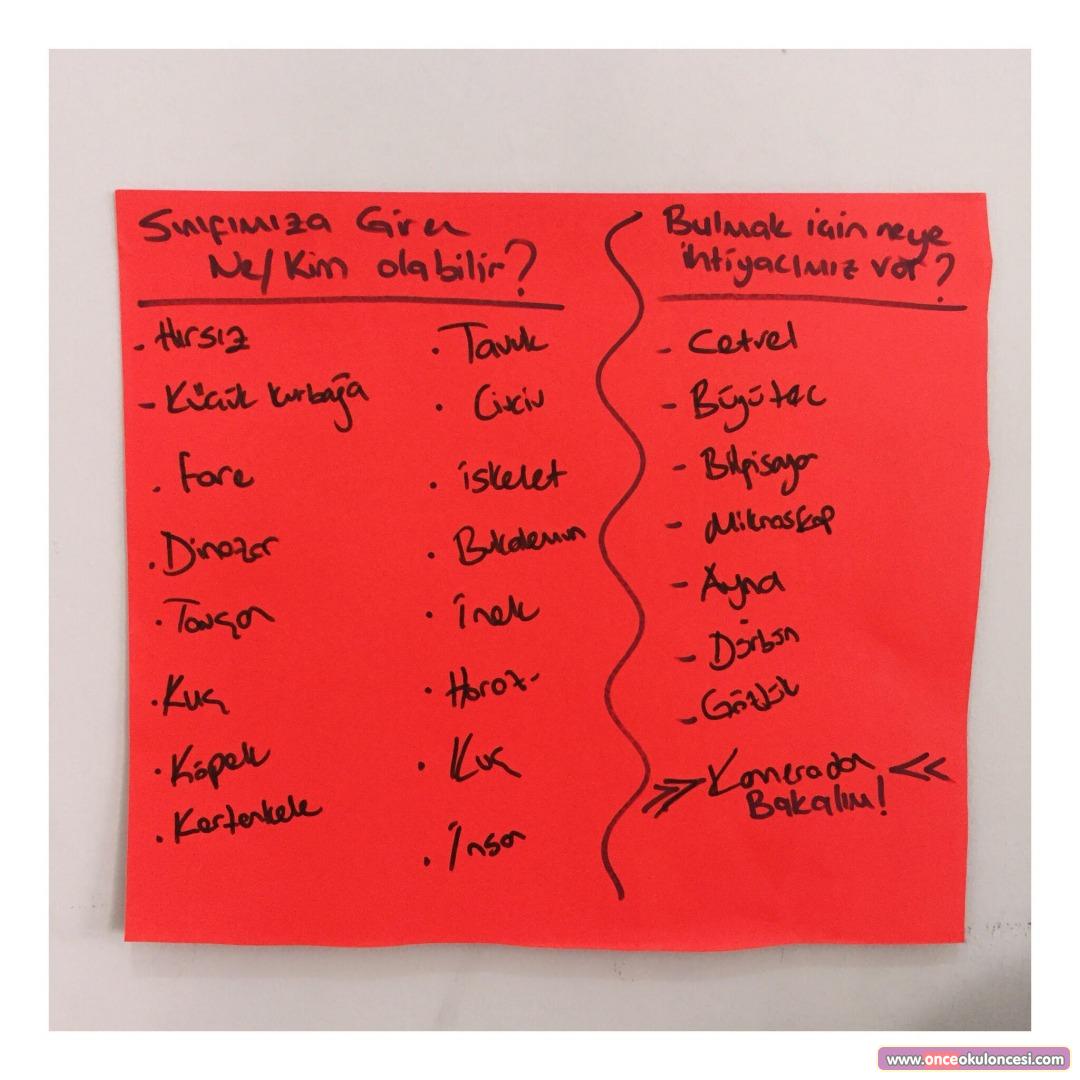 Sınıfımıza Giren
Ne/Kim olabilir?
- Hırsız
- Küçük kurbağa
. Fare
. Dinozor
. Tavşan
. Kuş
. Köpek
. Kertenkele
. Tavuk
. Civciv
. iskelet
. Bukalemun
. İnek
. Horoz
. Kuş
. İnsan
Bulmak için neye
ihtiyacımız var?
- Cetvel
- Büyüteç
- Bilgisayar
- Mikroskop
- Ayna
- Dürbün
- Gözlük
>> Kameradan <<
Bakalım!
www.onceokuloncesi.com